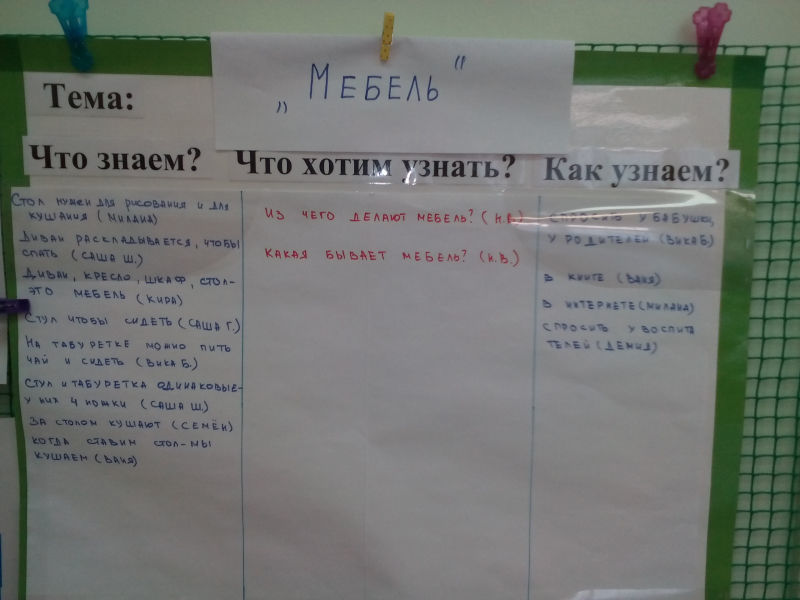 „Мебель“
Тема:
Что знаем?
Что хотим узнать?
Как узнаем?
Стол нужен для рисования и для
кушания (Милана)
Диван раскладывается, чтобы
спать (Саша Ш.)
Диван, кресло, шкаф, стол-
это мебель (Кира)
Стул чтобы сидеть (Саша Г.)
На табуретке можно пить
чай и сидеть (Вика Б.)
Стул и табуретка одинаковые-
у них 4 ножки (Саша Ш.)
За столом кушают (Семён)
Когда ставим стол-мы
кушаем (Ваня)
Из чего делают мебель? (Н.В.)
Какая бывает мебель? (Н.В.)
Спросить у бабушки,
у родителей (Вика Б.)
В книге (Ваня)
В интернете (Милана)
Спросить у воспита
телей (Демид)